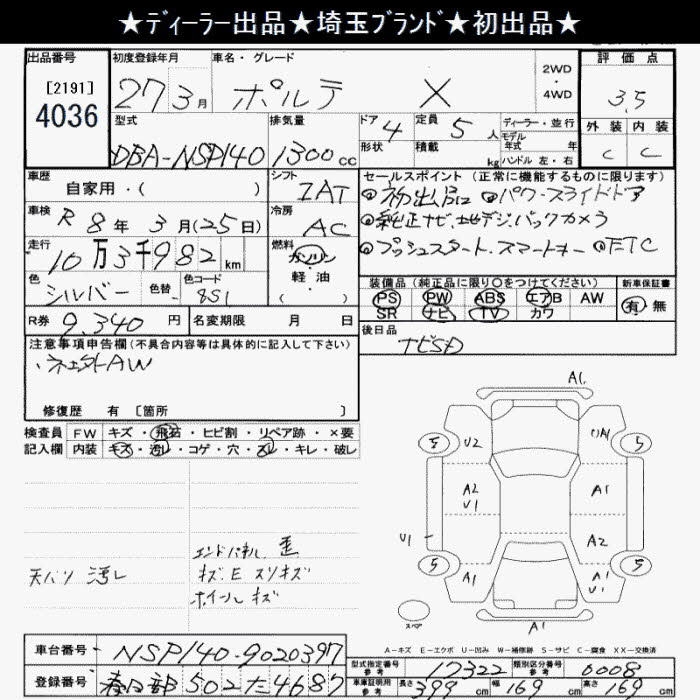 ★ディーラー出品★埼玉ブランド★初出品★
出品番号 初度登録年月 車名・グレード 評価点
[2191] 4036 27年3月 ポルテ X 2WD・4WD 3.5
型式 排気量 ドア 4 定員 5人 ディーラー・並行 外装 内装
DBA-NSP140 1300cc 形状 積載 kg モデル年式 年 ハンドル 左・右 C C
車歴 自家用・( ) シフト IAT セールスポイント (正常に機能するものに限ります)
車検 R8年3月(25日) 冷房 AC
◎初出品に ◎パワースライドドア
◎純正ナビ.地デジ.バックカメラ
◎プッシュスタート.スマートキー ◎ETC
走行 10万3千982km 燃料 ガソリン 軽・油 ( )
色 シルバー 色替 色コード 8S1
装備品 (純正品に限り○をつけてください) 新車保証書
PS PW ABS エアB AW 有・無
SR ナビ TV カワ
R券 9,340円 名変期限 月 日 後日品
ナビSD
注意事項申告欄(不具合内容等は具体的に記入して下さい)
・ネェ外AW
修復歴 有 [箇所 ]
検査員 FW キズ・飛石・ヒビ割・リペア跡・×要
記入欄 内装 キズ・汚レ・コゲ・穴・スレ・キレ・破レ
A1
5 U2 5
A2 U1 A1
U1 A2
5 A1 A1 U1 5
スペア A1
エンドパネル 歪
天バリ 汚レ キズ.E スリキズ
ホイールキズ
A-キズ E-エクボ U-凹み W-補修跡 S-サビ C-腐食 XX-交換済
車台番号 NSP140-9020397 型式指定番号 参考 17322 類別区分番号 参考 0008
登録番号 春日部 502 た 4687 車庫証明用 参考 長さ 399cm 幅 169cm 高さ 169cm